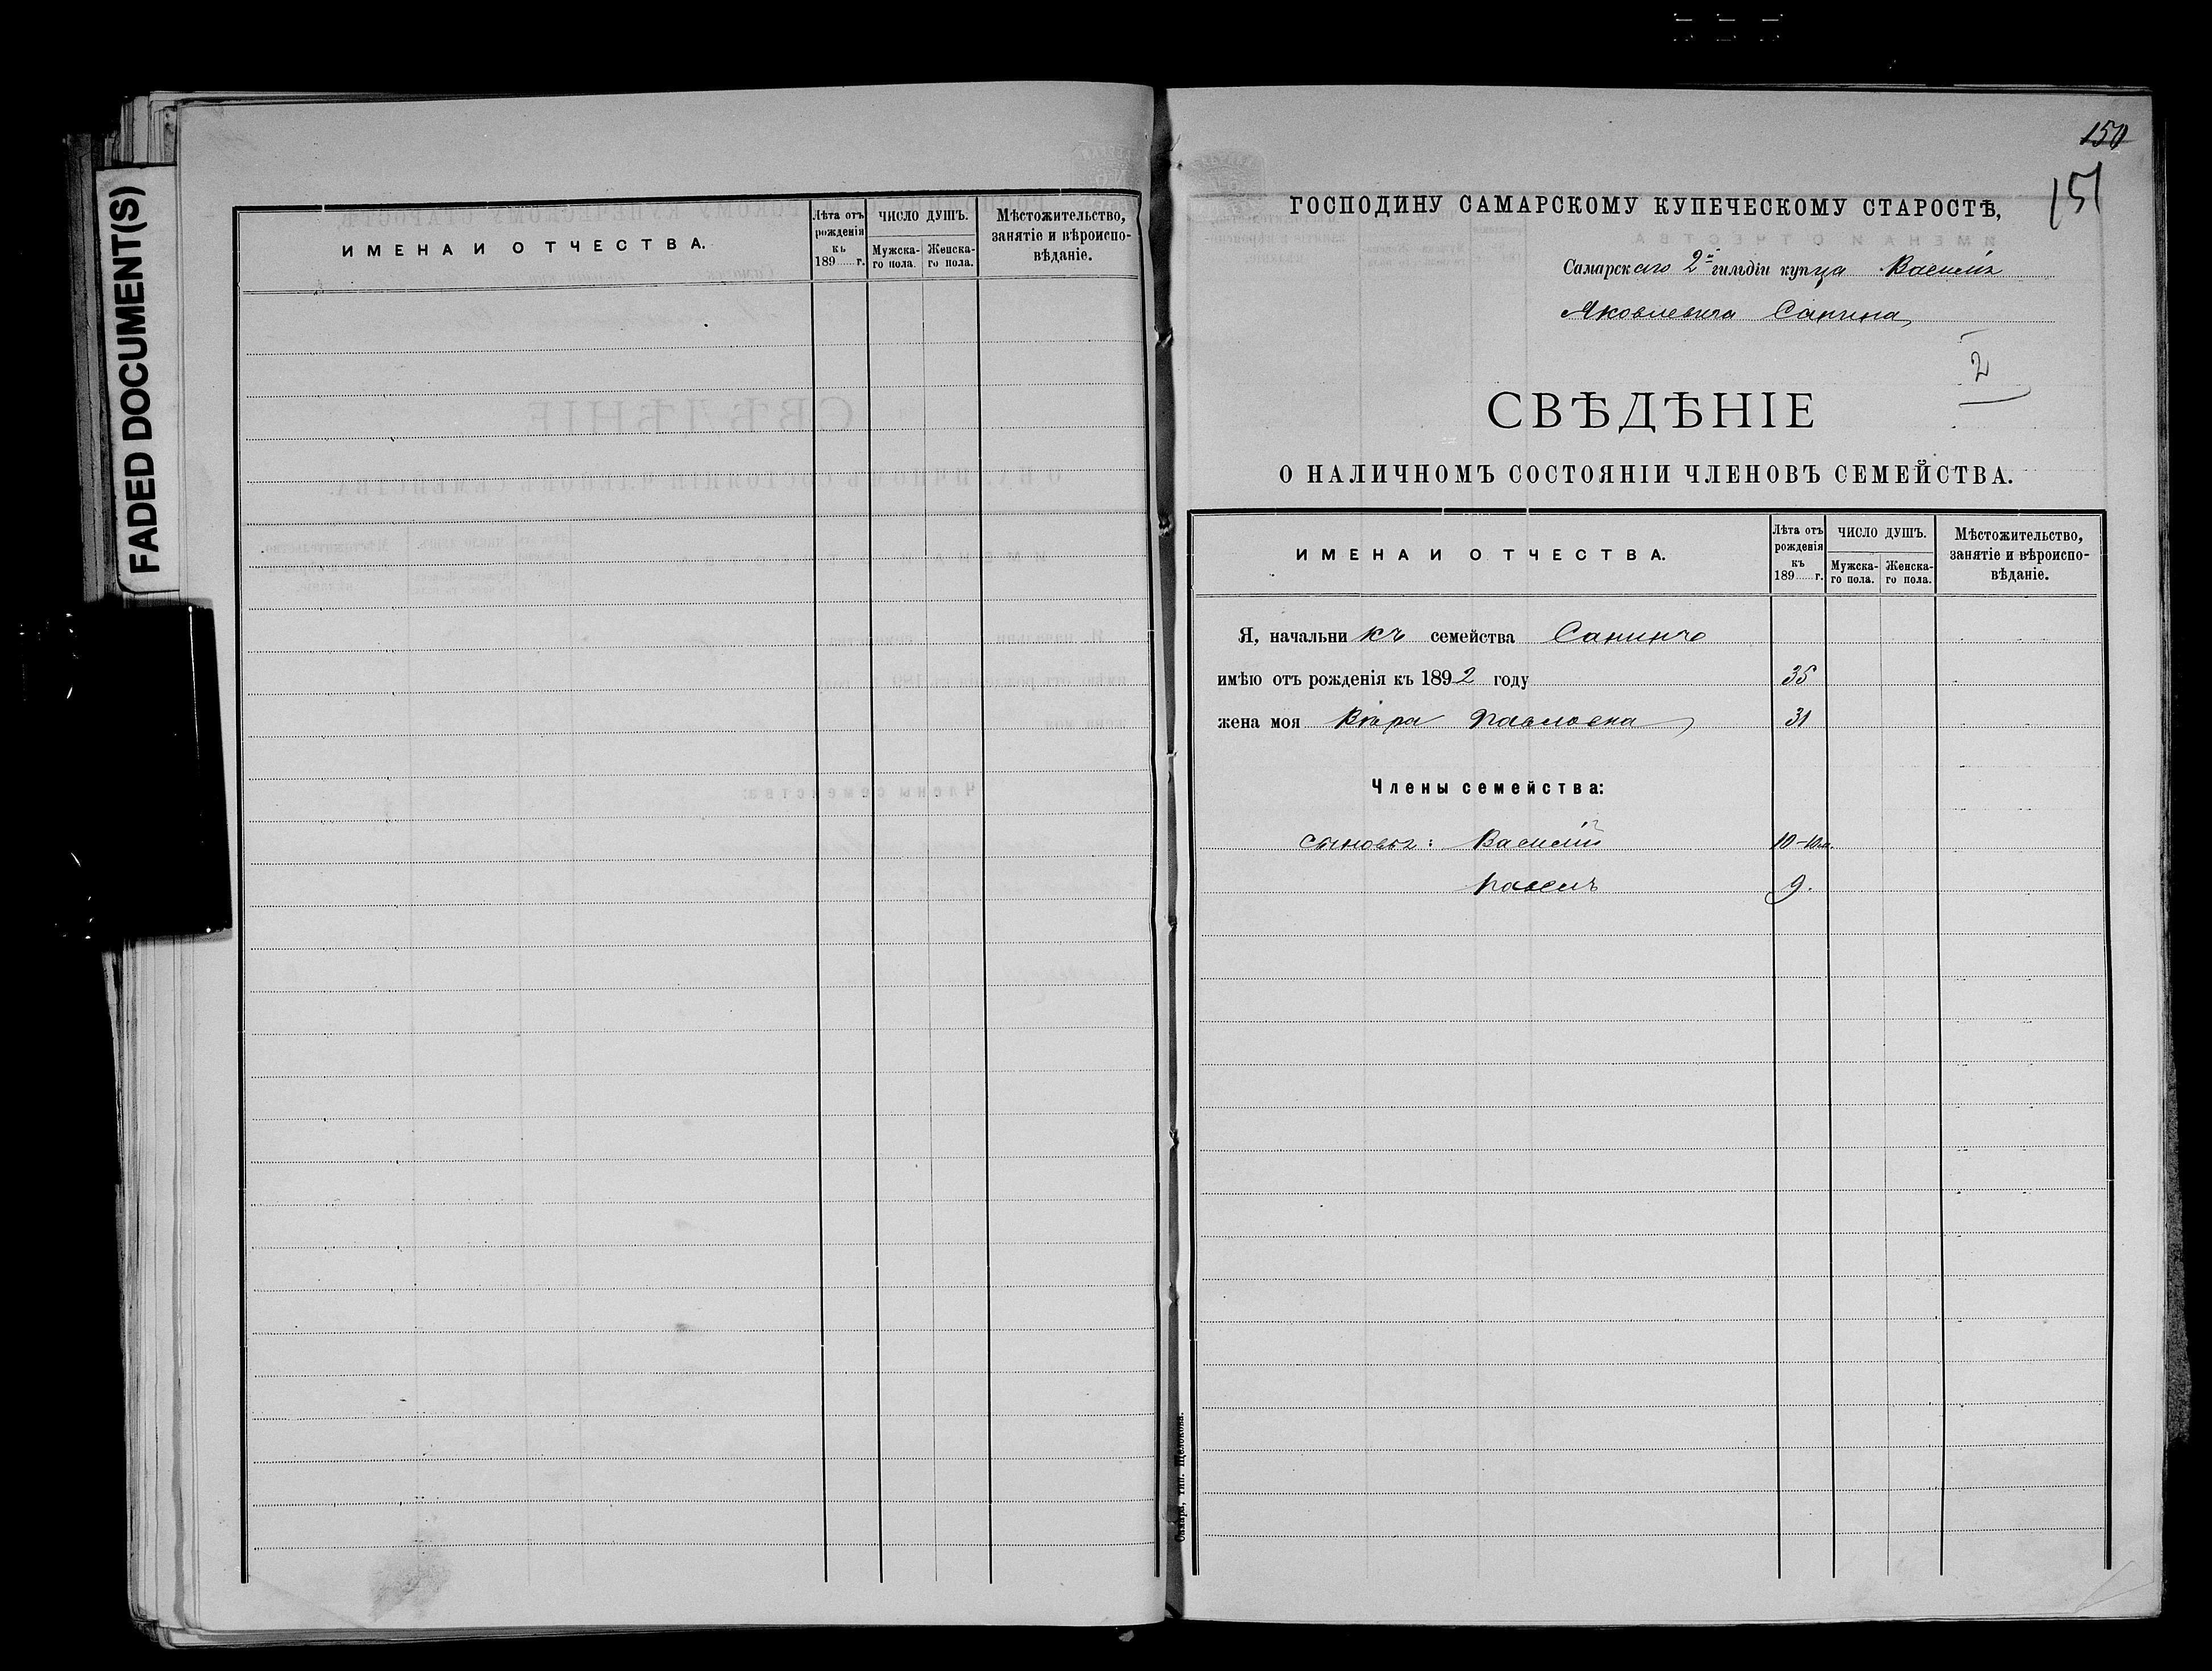 FADED DOCUMENT(S)
ИМЕНА И ОТЧЕСТВА.
Лѣта отъ рожденія къ 189 г.
ЧИСЛО ДУШЪ.
Мужска-го пола.
Женска-го пола.
Мѣстожительство, занятіе и вѣроиспо-вѣданіе.
150
151
ГОСПОДИНУ САМАРСКОМУ КУПЕЧЕСКОМУ СТАРОСТѢ,
Самарскаго 2й гильдіи купца Василія
Яковлевича Санина
2
СВѢДѢНІЕ
О НАЛИЧНОМЪ СОСТОЯНІИ ЧЛЕНОВЪ СЕМЕЙСТВА.
ИМЕНА И ОТЧЕСТВА.
Лѣта отъ рожденія къ 189 г.
ЧИСЛО ДУШЪ.
Мужска-го пола.
Женска-го пола.
Мѣстожительство, занятіе и вѣроиспо-вѣданіе.
Я, начальникъ семейства Санинъ
имѣю отъ рожденія къ 1892 году 35
жена моя Вѣра Павловна 31
Члены семейства:
сыновья: Василій 10
Павелъ 9.
Самара, тип. Щелокова.